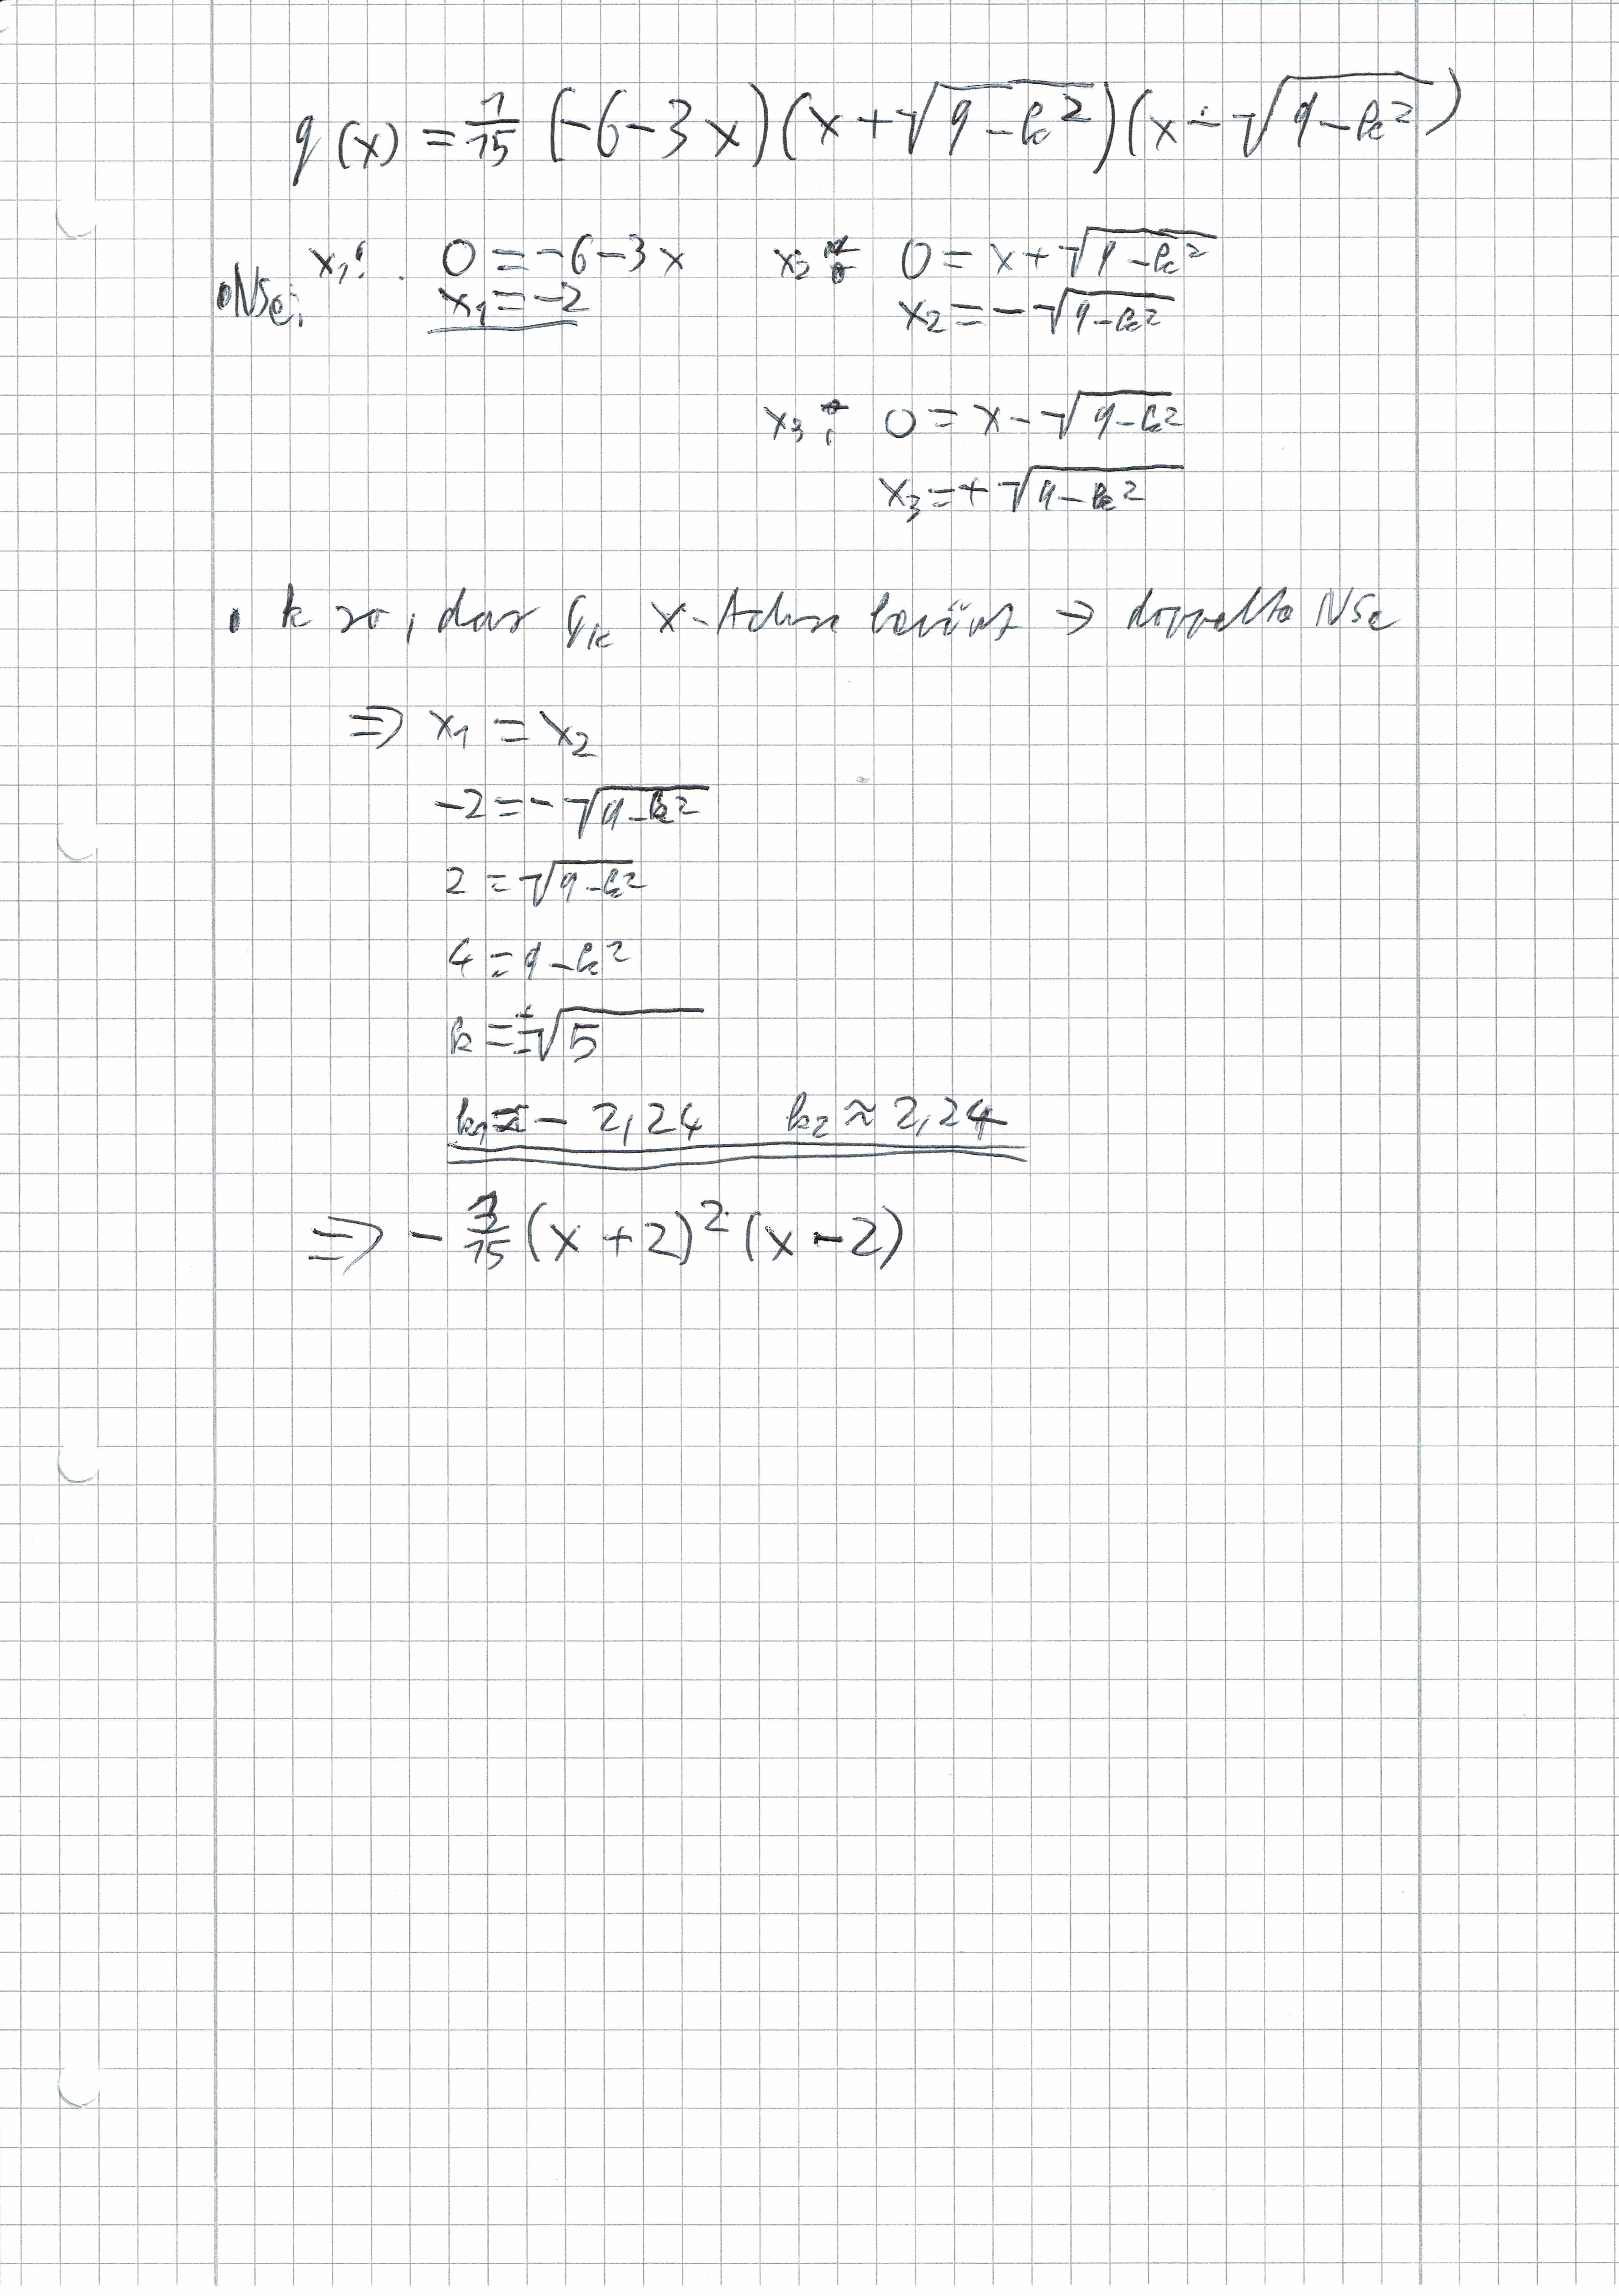 q(x) = 1/15 (-6-3x)(x+√(9-k²))(x-√(9-k²))
NSe: x₁: 0 = -6-3x x₃: 0 = x+√(9-k²)
x₁ = -2 x₂ = -√(9-k²)
x₃: 0 = x-√(9-k²)
x₃ = +√(9-k²)
• k so, dass qₖ x-Achse berührt → doppelte NSe
⇒ x₁ = x₂
-2 = -√(9-k²)
2 = √(9-k²)
4 = 9-k²
k = ±√5
k₁ ≈ -2,24 k₂ ≈ 2,24
⇒ - /15 (x+2)²(x-2)